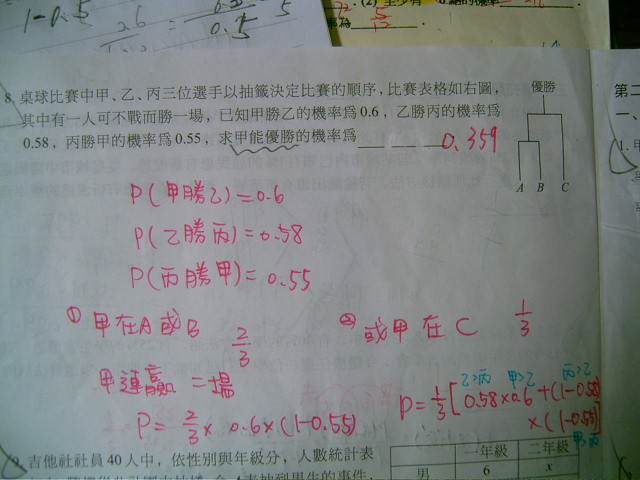 1-0.5
0.5
5
(2) 至少有
5/12
8. 桌球比賽中甲、乙、丙三位選手以抽籤決定比賽的順序,比賽表格如右圖,
其中有一人可不戰而勝一場,已知甲勝乙的機率為0.6,乙勝丙的機率為
0.58,丙勝甲的機率為0.55,求甲能優勝的機率為 0.359
優勝
A B C
第二
一、
1. 甲
P(甲勝乙)=0.6
P(乙勝丙)=0.58
P(丙勝甲)=0.55
① 甲在A或B 2/3
甲連贏二場
P= 2/3 × 0.6×(1-0.55)
② 或甲在C 1/3
乙>丙 甲>乙 丙>乙
P= 1/3 [0.58×0.6+(1-0.58)
×(1-0.55)]
甲>丙
9. 吉他社社員40人中,依性別與年級分,人數統計表
一年級 二年級
男 6 x